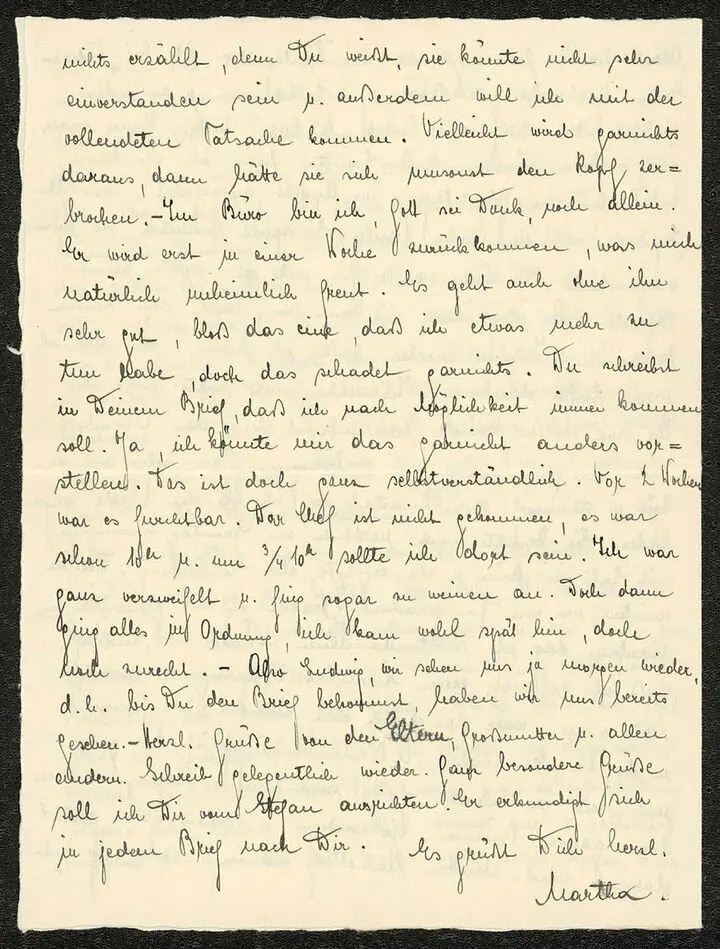 nichts erzählt, denn Du weißt, sie könnte nicht sehr
einverstanden sein u. außerdem will ich mit der
vollendeten Tatsache kommen. Vielleicht wird garnichts
daraus, dann hätte sie sich umsonst den Kopf zer=
brochen. – Im Büro bin ich, Gott sei Dank, noch allein.
Er wird erst in einer Woche zurückkommen, was mich
natürlich unheimlich freut. Es geht auch ohne ihn
sehr gut, bloß das eine, daß ich etwas mehr zu
tun habe, doch das schadet garnichts. Du schreibst
in Deinem Brief, daß ich nach Möglichkeit immer kommen
soll. Ja, ich könnte mir das garnicht anders vor=
stellen. Das ist doch ganz selbstverständlich. Vor 2 Wochen
war es furchtbar. Der Chef ist nicht gekommen, es war
schon 10h u. um 3/4 10h sollte ich dort sein. Ich war
ganz verzweifelt u. fing sogar zu weinen an. Doch dann
ging alles in Ordnung, ich kam wohl spät hin, doch
noch zurecht. – Also Ludwig, wir sehen uns ja morgen wieder,
d.h. bis Du den Brief bekommst, haben wir uns bereits
gesehen. – Herzl. Grüße von den Eltern, Großmutter u. allen
andern. Schreib gelegentlich wieder. Ganz besondere Grüße
soll ich Dir vom Stefan ausrichten. Er erkundigt sich
in jedem Brief nach Dir. Es grüßt Dich herzl.
Martha.